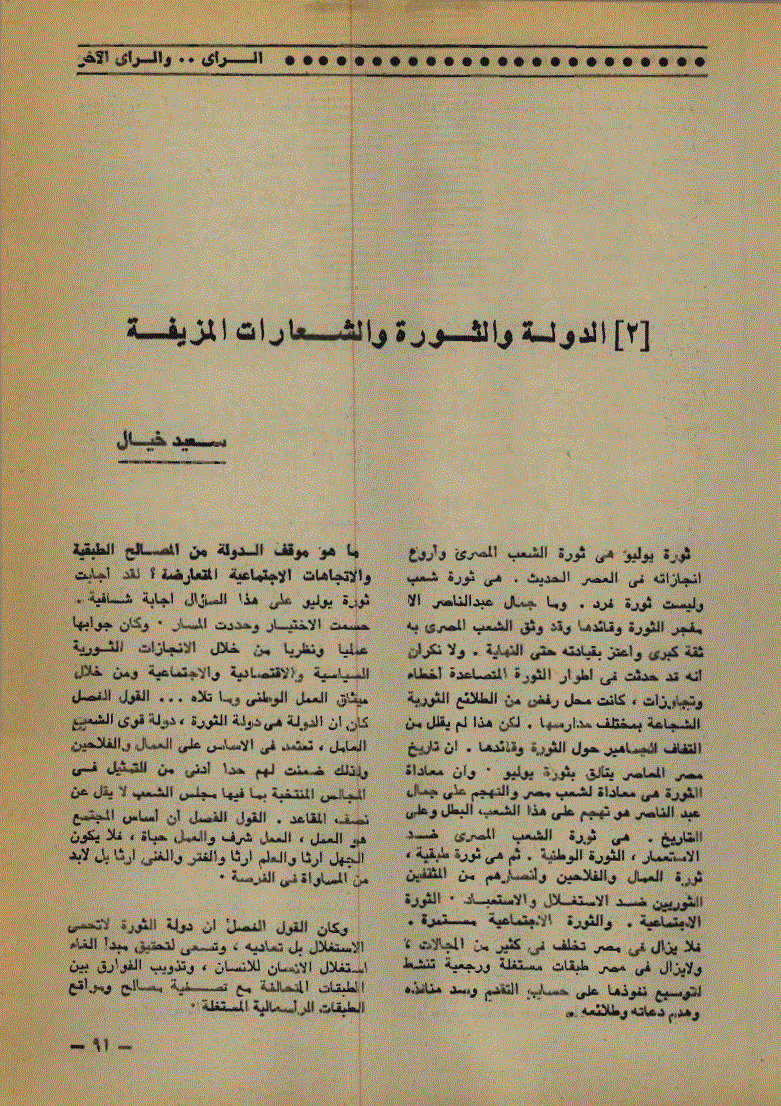 الـــرأى .. والرأى الآخر
[٢] الدولـة والثـــورة والشـــعارات المزيفـــة
ســعيد خيــال
ثورة يوليو هى ثورة الشعب المصرى وأروع
انجازاته فى العصر الحديث . هى ثورة شعب
وليست ثورة فرد . وما جمال عبدالناصر الا
مفجر الثورة وقائدها وقد وثق الشعب المصرى به
ثقة كبرى واعتز بقيادته حتى النهاية . ولا نكران
أنه قد حدثت فى اطوار الثورة المتصاعدة أخطاء
وتجاوزات ، كانت محل رفض من الطلائع الثورية
الشجاعة بمختلف مدارسها . لكن هذا لم يقلل من
التفاف الجماهير حول الثورة وقائدها . ان تاريخ
مصر المعاصر يتألق بثورة يوليو . وان معاداة
الثورة هى معاداة لشعب مصر والتهجم على جمال
عبد الناصر هو تهجم على هذا الشعب البطل وعلى
التاريخ . هى ثورة الشعب المصرى ضــد
الاستعمار ، الثورة الوطنية . ثم هى ثورة طبقية ،
ثورة العمال والفلاحين وأنصارهم من المثقفين
الثوريين ضــد الاستغــلال والاستعبــاد . الثورة
الاجتماعية . والثورة الاجتماعية مستمرة .
فلا يزال فى مصر تخلف فى كثير من المجالات ،
ولايزال فى مصر طبقات مستغلة ورجعية تنشط
لتوسيع نفوذها على حساب التقدم وسد منافذه
وهدم دعاته وطلائعه .
ما هو موقف الــدولة من المصــالح الطبقية
والاتجاهات الاجتماعية المتعارضة ؟ لقد أجابت
ثورة يوليو على هذا السؤال اجابة شــافية .
حسمت الاختيــار وحددت المسار . وكان جوابها
عمليا ونظريا من خلال الانجازات الثــورية
السياسية والاقتصادية والاجتماعية ومن خلال
ميثاق العمل الوطنى وما تلاه ... القول الفصل
كان ان الدولة هى دولة الثورة ، دولة قوى الشعب
العامل ، تعتمد فى الاساس على العمال والفلاحين
ولذلك ضمنت لهم حدا أدنى من التمثيل فــى
المجالس المنتخبة بما فيها مجلس الشعب لا يقل عن
نصف المقاعد . القول الفصل أن أساس المجتمع
هو العمل ، العمل شرف والعمل حياة ، فلا يكون
الجهل ارثا والعلم ارثا والفقر والغنى ارثا بل لابد
من المساواة فى الفرصة .
وكان القول الفصل أن دولة الثورة لاتحمى
الاستغلال بل تعاديه ، وتسعى لتحقيق مبدأ الغاء
استغلال الانسان للانسان ، وتذويب الفوارق بين
الطبقات المتحالفة مع تصــفية مصالح ومواقع
الطبقات الرأسمالية المستغلة .
— ٩١ —